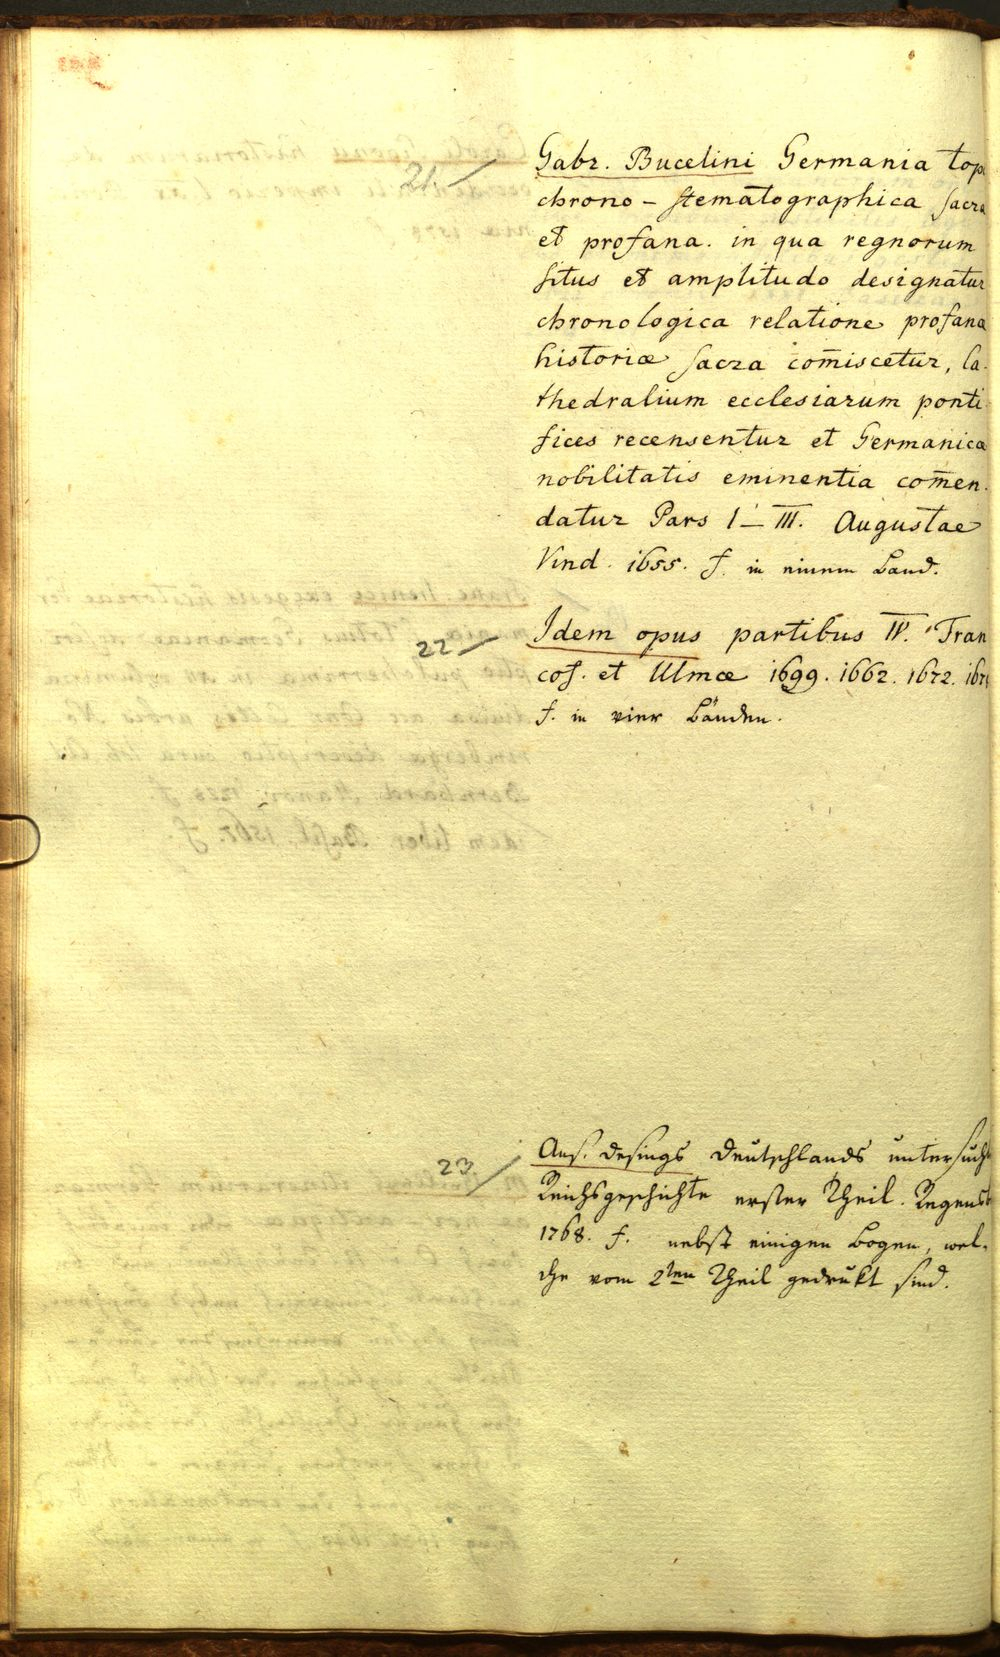 21
Gabr. Bucelini Germania top
chrono - stematographica sacra
et profana. in qua regnorum
situs et amplitudo designatur
chronologica relatione profana
historiæ sacra com̄iscetur, Ca-
thedralium ecclesiarum ponti-
fices recensentur et Germanica
nobilitatis eminentia com̄en-
datur Pars I – III. Augustae
Vind. 1655. f. in einem Band.
22
Idem opus partibus IV. Fran
cof. et Ulmæ 1699. 1662. 1672. 167
f. in vier Bänden.
23.
Ans. Desings Deutschlands untersucht
Reichsgeschichte erster Theil. Regensb
1768. f. nebst einigen Bogen, wel-
che vom 2ten Theil gedrukt sind.